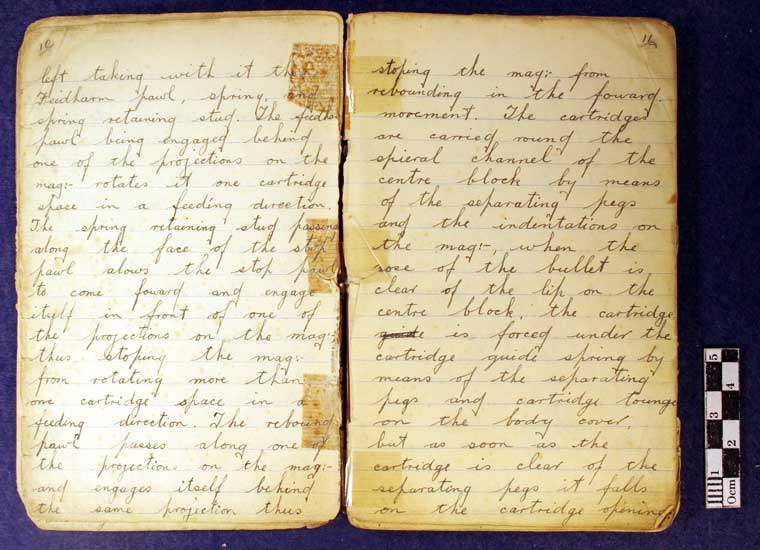 10
left taking with it the
Feedharm pawl, spring, and
spring retaining stud. The feedh
pawl being engaged behind
one of the projections on the
mag:- rotates it one cartridge
space in a feeding direction.
The spring retaining stud passing
along the face of the stop
pawl alows the stop pawl
to come foward and engage
itself in front of one of
the projections on the mag:-
thus stoping the mag:-
from rotating more than
one cartridge space in a
feeding direction. The rebound
pawl passes along one of
the projection. on the mag:-
and engages itself behind
the same projection thus
11
stoping the mag:- from
rebounding in the foward.
movement. The cartridges
are carried round the
spieral channel of the
centre block by means
of the separating pegs
and the indentations on
the mag:-, when the
nose of the bullet is
clear of the lip on the
centre block, the cartridge
guide is forced under the
cartridge guide spring by
means of the separating
pegs and cartridge tounge
on the body cover,
but as soon as the
cartridge is clear of the
separating pegs it falls
on the cartridge opening
0cm 1 2 3 4 5